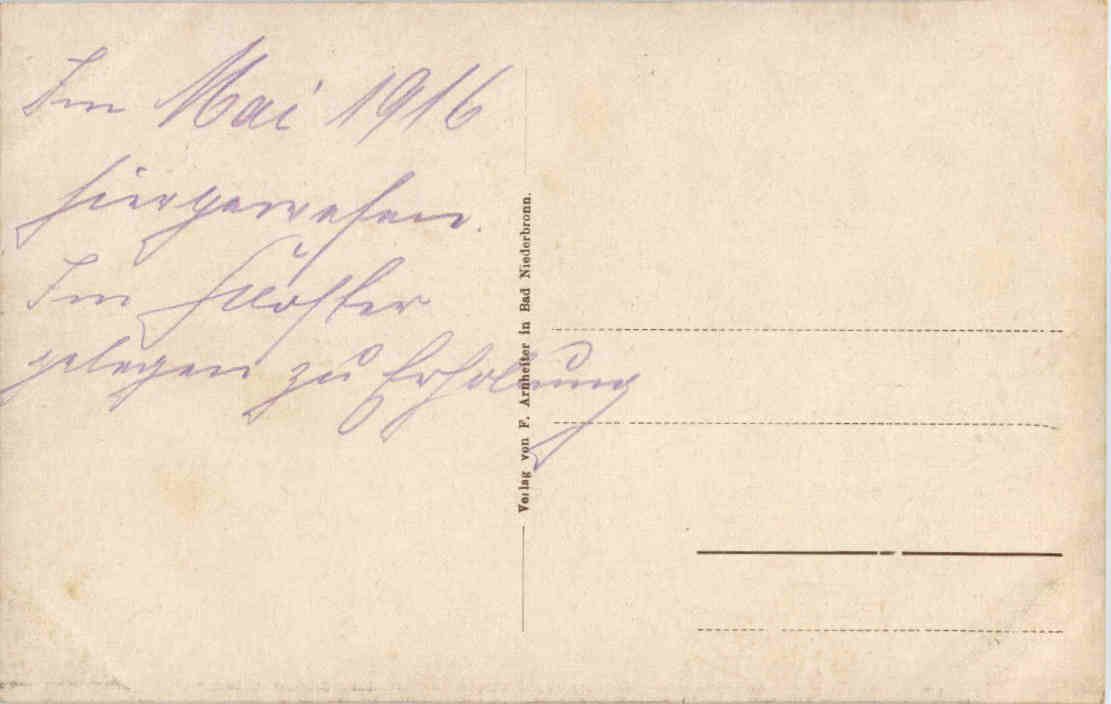 Im Mai 1916
hiergewesen.
Im Kloster
gelegen zu Erholung
Verlag von F. Arnheiter in Bad Niederbronn.